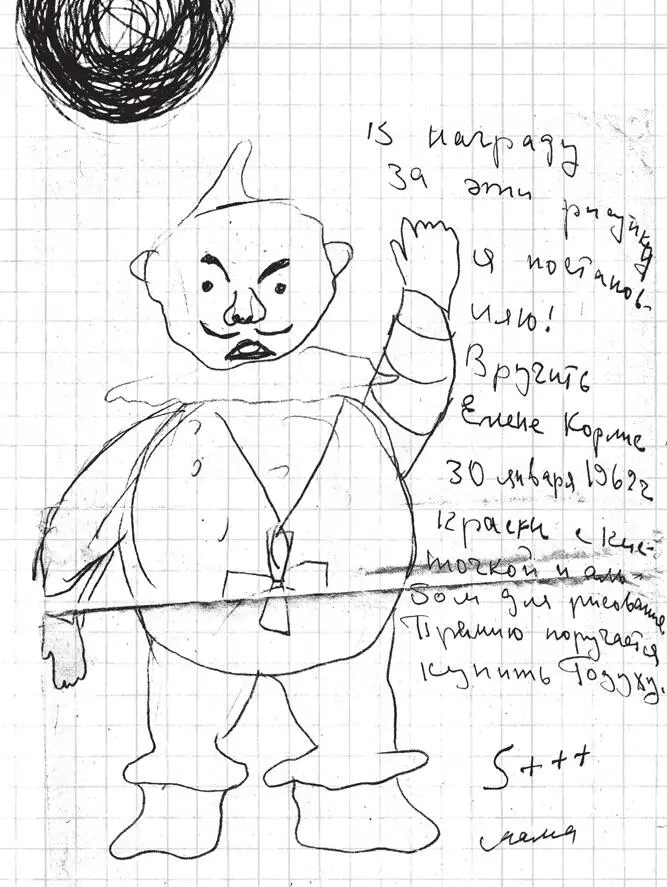 В награду
за эти рисунки
я постанов-
ляю!
Вручить
Елене
30 января 1962г
краски с кис-
точкой и аль-
бом для рисования.
Премию поручается
купить
5+++
мама